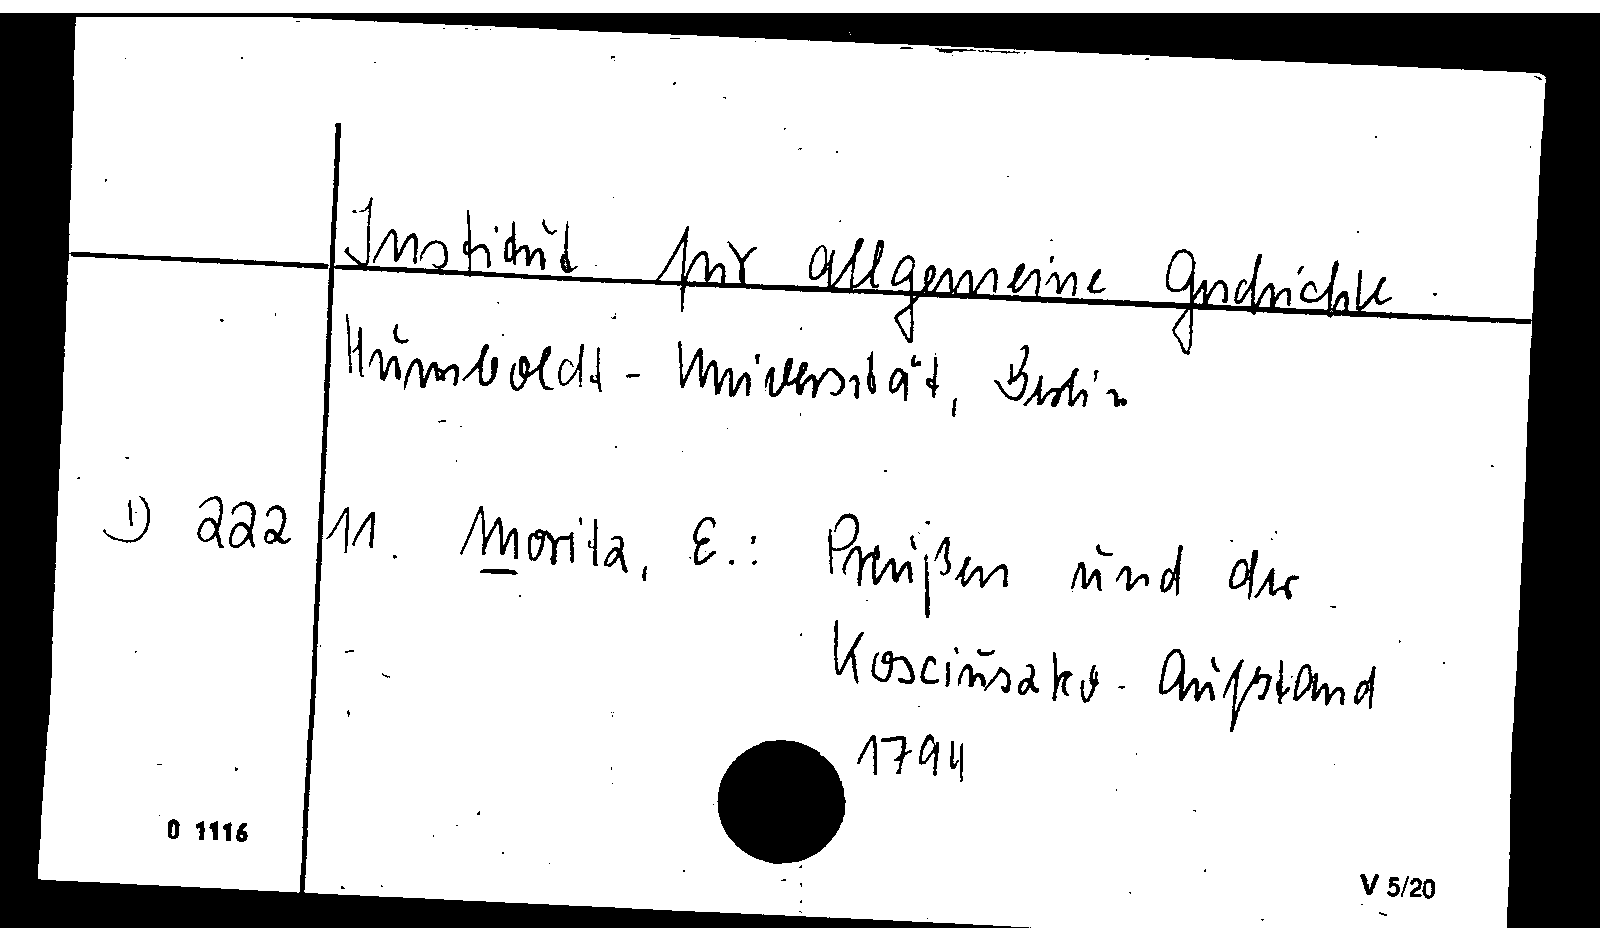 Institut für allgemeine Geschichte
Humboldt-Universität, Berlin
1) 222 11. Moritz, E.: Preußen und der
Kosciuszko-Aufstand
1794
0 1116
V 5/20